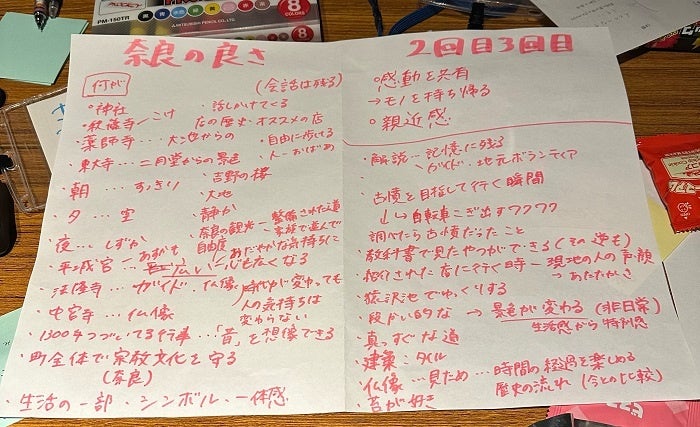 PM-150TR
MITSUBISHI PENCIL CO.,LTD.
8
COLORS
8
奈良の良さ
何が
(会話は残る)
・神社
・秋篠寺/こけ
・話しかけてくる
店の歴史・オススメの店
・薬師寺…大池からの
・自由に歩ける
東大寺…二月堂からの景色
・人…おばあ
・朝…すっきり
・吉野の桜
・大地
・夕…空
・静か
・夜…しずか
・奈良の観光―整備された道
自由度
本格で遊んで
・平城宮―あすがも
広い―心もなくなる
おだやかな気持ちに
・法隆寺…ガイド、仏像
・中宮寺…仏像
時代が変わっても
人の気持ちは
変わらない
・1300年つづいてる行事…「昔」を想像できる
・町全体で宗教文化を守る
(奈良)
・生活の一部、シンボル、一体感
2回目3回目
○感動を共有
→モノを持ち帰る
○親近感
・解説…記憶に残る
ガイド、地元ボランティア
・古墳を目指して行く瞬間
自転車こぎ出すワクワク
調べたら古墳だったこと
・教科書で見たやつができる(その逆も)
・紹介された店に行く時―現地の人の声、顔
→あたたかさ
・猿沢池でゆっくりする
・段かい的な→景色が変わる(非日常)
生活感から特別感
・真っすぐな道
・建築・タイル
・仏像…見ため…時間の経過を楽しめる
歴史の流れ(今との比較)
・昔が好き